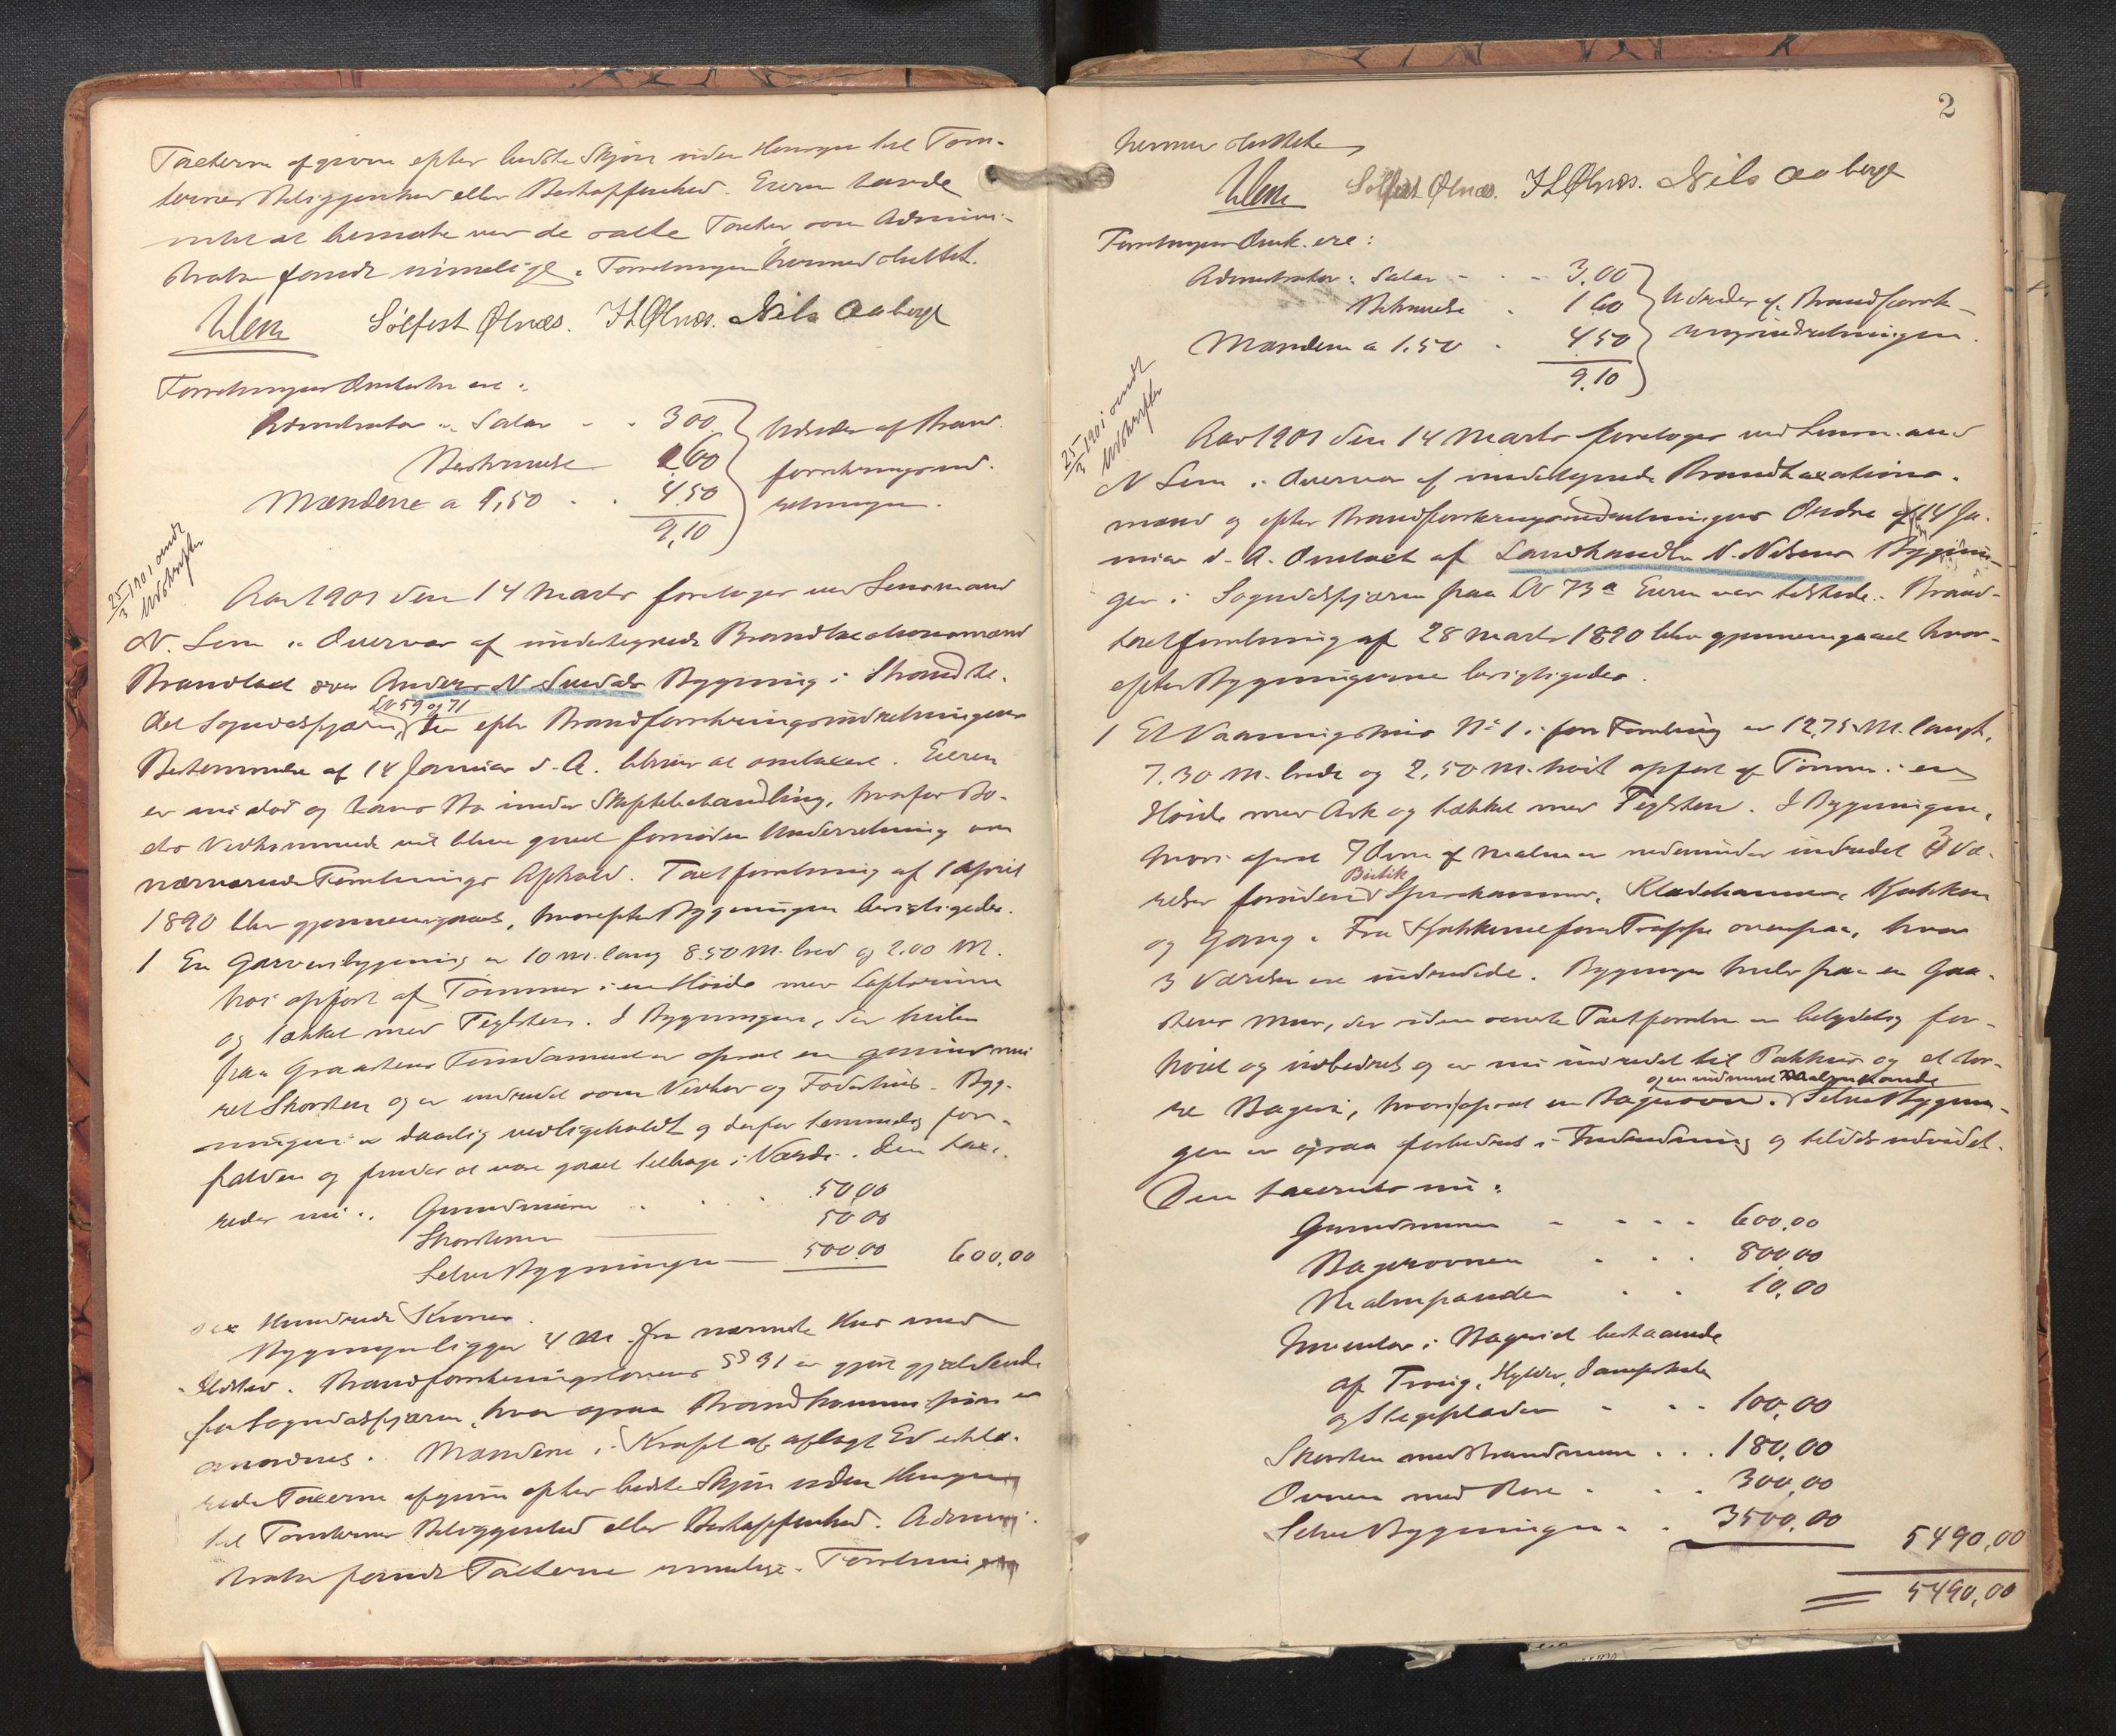 Taxterne afgivne efter bedste Skjøn uden Hensyn til Tom-
ternes Beliggenhed eller Beskaffenhed. Eieren havde
intet at bemærke ved de satte Taxter som Admini-
strator fandt rimelige. Forretningen hermed sluttet.
NLem Sølfest Ølnæs. ILØlnæs. Nils Aaberge
Forretningens Omkostn ere:
Administrator i Salær - - 3 00
Beskrivelse 1 60
Mændene a 1,50 - - 4.50
9,10
Udredes af Brand-
forsikringsind-
retningen.
25/3 1901 sendt
Udskrift
Aar 1901 den 14 Marts foretoges ved Lensmand
N. Lem i Overvær af undertegnede Brandtaxationsmænd
Brandtaxt over Anders N Svedals Bygning i Strandste-
det Sogndalsfjæren LN 59 og 71 der efter Brandforsikringsindretningens
Bestemmelse af 14 Januar d. A. bliver at omtaxere. Eieren
er nu død og hans Bo under Skiftebehandling, hvorfor Bo-
ets Vedkommende vil blive givet fornøden Underretning om
nærværende Forretnings Afhold. Taxtforretning af 1 April
1890 blev gjennemgaaet, hvorefter Bygningen besigtigedes.
1 En Garveribygning er 10 m. lang 8.50 M. bred og 2.00 M.
høi opført af Tømmer i en Høide med Loftsrum
og tækket med Teglsten. I Bygningen, der hviler
paa Graastens Fundament er opsat en gjennemmu
ret Skorsten og er indredet som Verksted og Foderhus. Byg-
ningen er daarlig vedligeholdt og derfor temmelig for-
falden og findes at være gaaet tilbage i Værdi. Den taxe-
redes nu: Grundmuren - - - 50,00
Skorstenen 50 00
Selve Bygningen 500.00 600,00
sex Hundrede Kroner.
Bygningen ligger 4 M. fra nærmeste Hus med
Ildsted. Brandforsikringslovens §§ 91 er gjort gjældende
for Sogndalsfjæren, hvor ogsaa Brandkommission er
anordnet. Mændene i Kraft af aflagt Ed erklæ-
rede Taxterne afgivne efter bedste Skjøn uden Hensyn
til Tomternes Beliggenhed eller Beskaffenhed. Admini-
strator fandt Taxterne rimelige. Forretningen
2
hermed sluttet
NLem Sølfest Ølnæs. ILØlnæs. Nils Aaberge
Forretningens Omk. ere:
Administrator i Salær - - - 3,00
Beskrivelse - 1 60
Mændene a 1.50 - 4 50
9.10
Udredes af Brandforsik-
ringsindretningen.
25/3 1901 sendt
Udskrifter
Aar 1901 den 14 Marts foretoges ved Lensmand
N Lem i Overvær af undertegnede Brandtaxations-
mænd og efter Brandforsikringsindretningens Ordre af 14 Ja-
nuar d. A. Omtaxt af Landhandler N. Nilsens Bygnin-
ger i Sogndalsfjæren paa LN 73a Eieren var tilstede. Brand-
taxtforretning af 28 Marts 1890 blev gjennemgaaet hvor-
efter Bygningerne besigtigedes.
1 Et Vaaningshus No 1 i forr Forretning er 12,75 M. langt,
7.30 M. bredt og 2,50 M. høit opført af Tømmer i en
Høide med Ark og tækket med Teglsten. I Bygningen,
hvori opsat 7 Ovne af Malm er nedenunder indredet 3 Væ-
relser foruden Butik Spisekammer, Klædekammer, Kjøkken
og Gang. Fra Kjøkkenet fører Trappe ovenpaa, hvor
3 Værelser ere indredede. Bygningen hviler paa en Graa-
stens Mur, der siden seneste Taxtforretn er betydelig for-
høiet og udbedret og er nu indredet til Pakhus og et stør-
re Bageri, hvori opsat en Bagerovn og en indmuret Malmpande. Selve Bygnin-
gen er ogsaa forbedret i Indredning og tildels udvidet.
Den taxeredes nu:
Grundmuren - - - - 600.00
Bagerovnen - - - 800,00
Malmpanden - - 10,00
Inventar i Bageriet bestaaende
af Traug, Hylder, Dampskab
og Stegeplader - - - 100,00
Skorsten med Brandmure . . . 180,00
Ovnene med Rør - - - 300,00
Selve Bygningen - - 3500,00 5490,00
5490,00